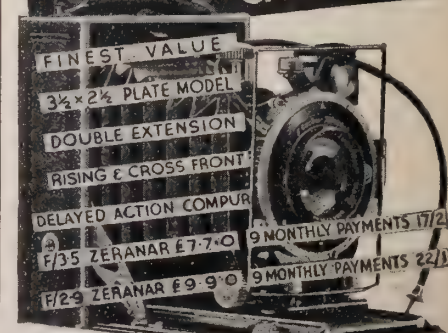 FINEST VALUE
3½×2½ PLATE MODEL
DOUBLE EXTENSION
RISING & CROSS FRONT
DELAYED ACTION COMPUR
F/3·5 ZERANAR £7·7·0 9 MONTHLY PAYMENTS 17/2
F/2·9 ZERANAR £9·9·0 9 MONTHLY PAYMENTS 22/1